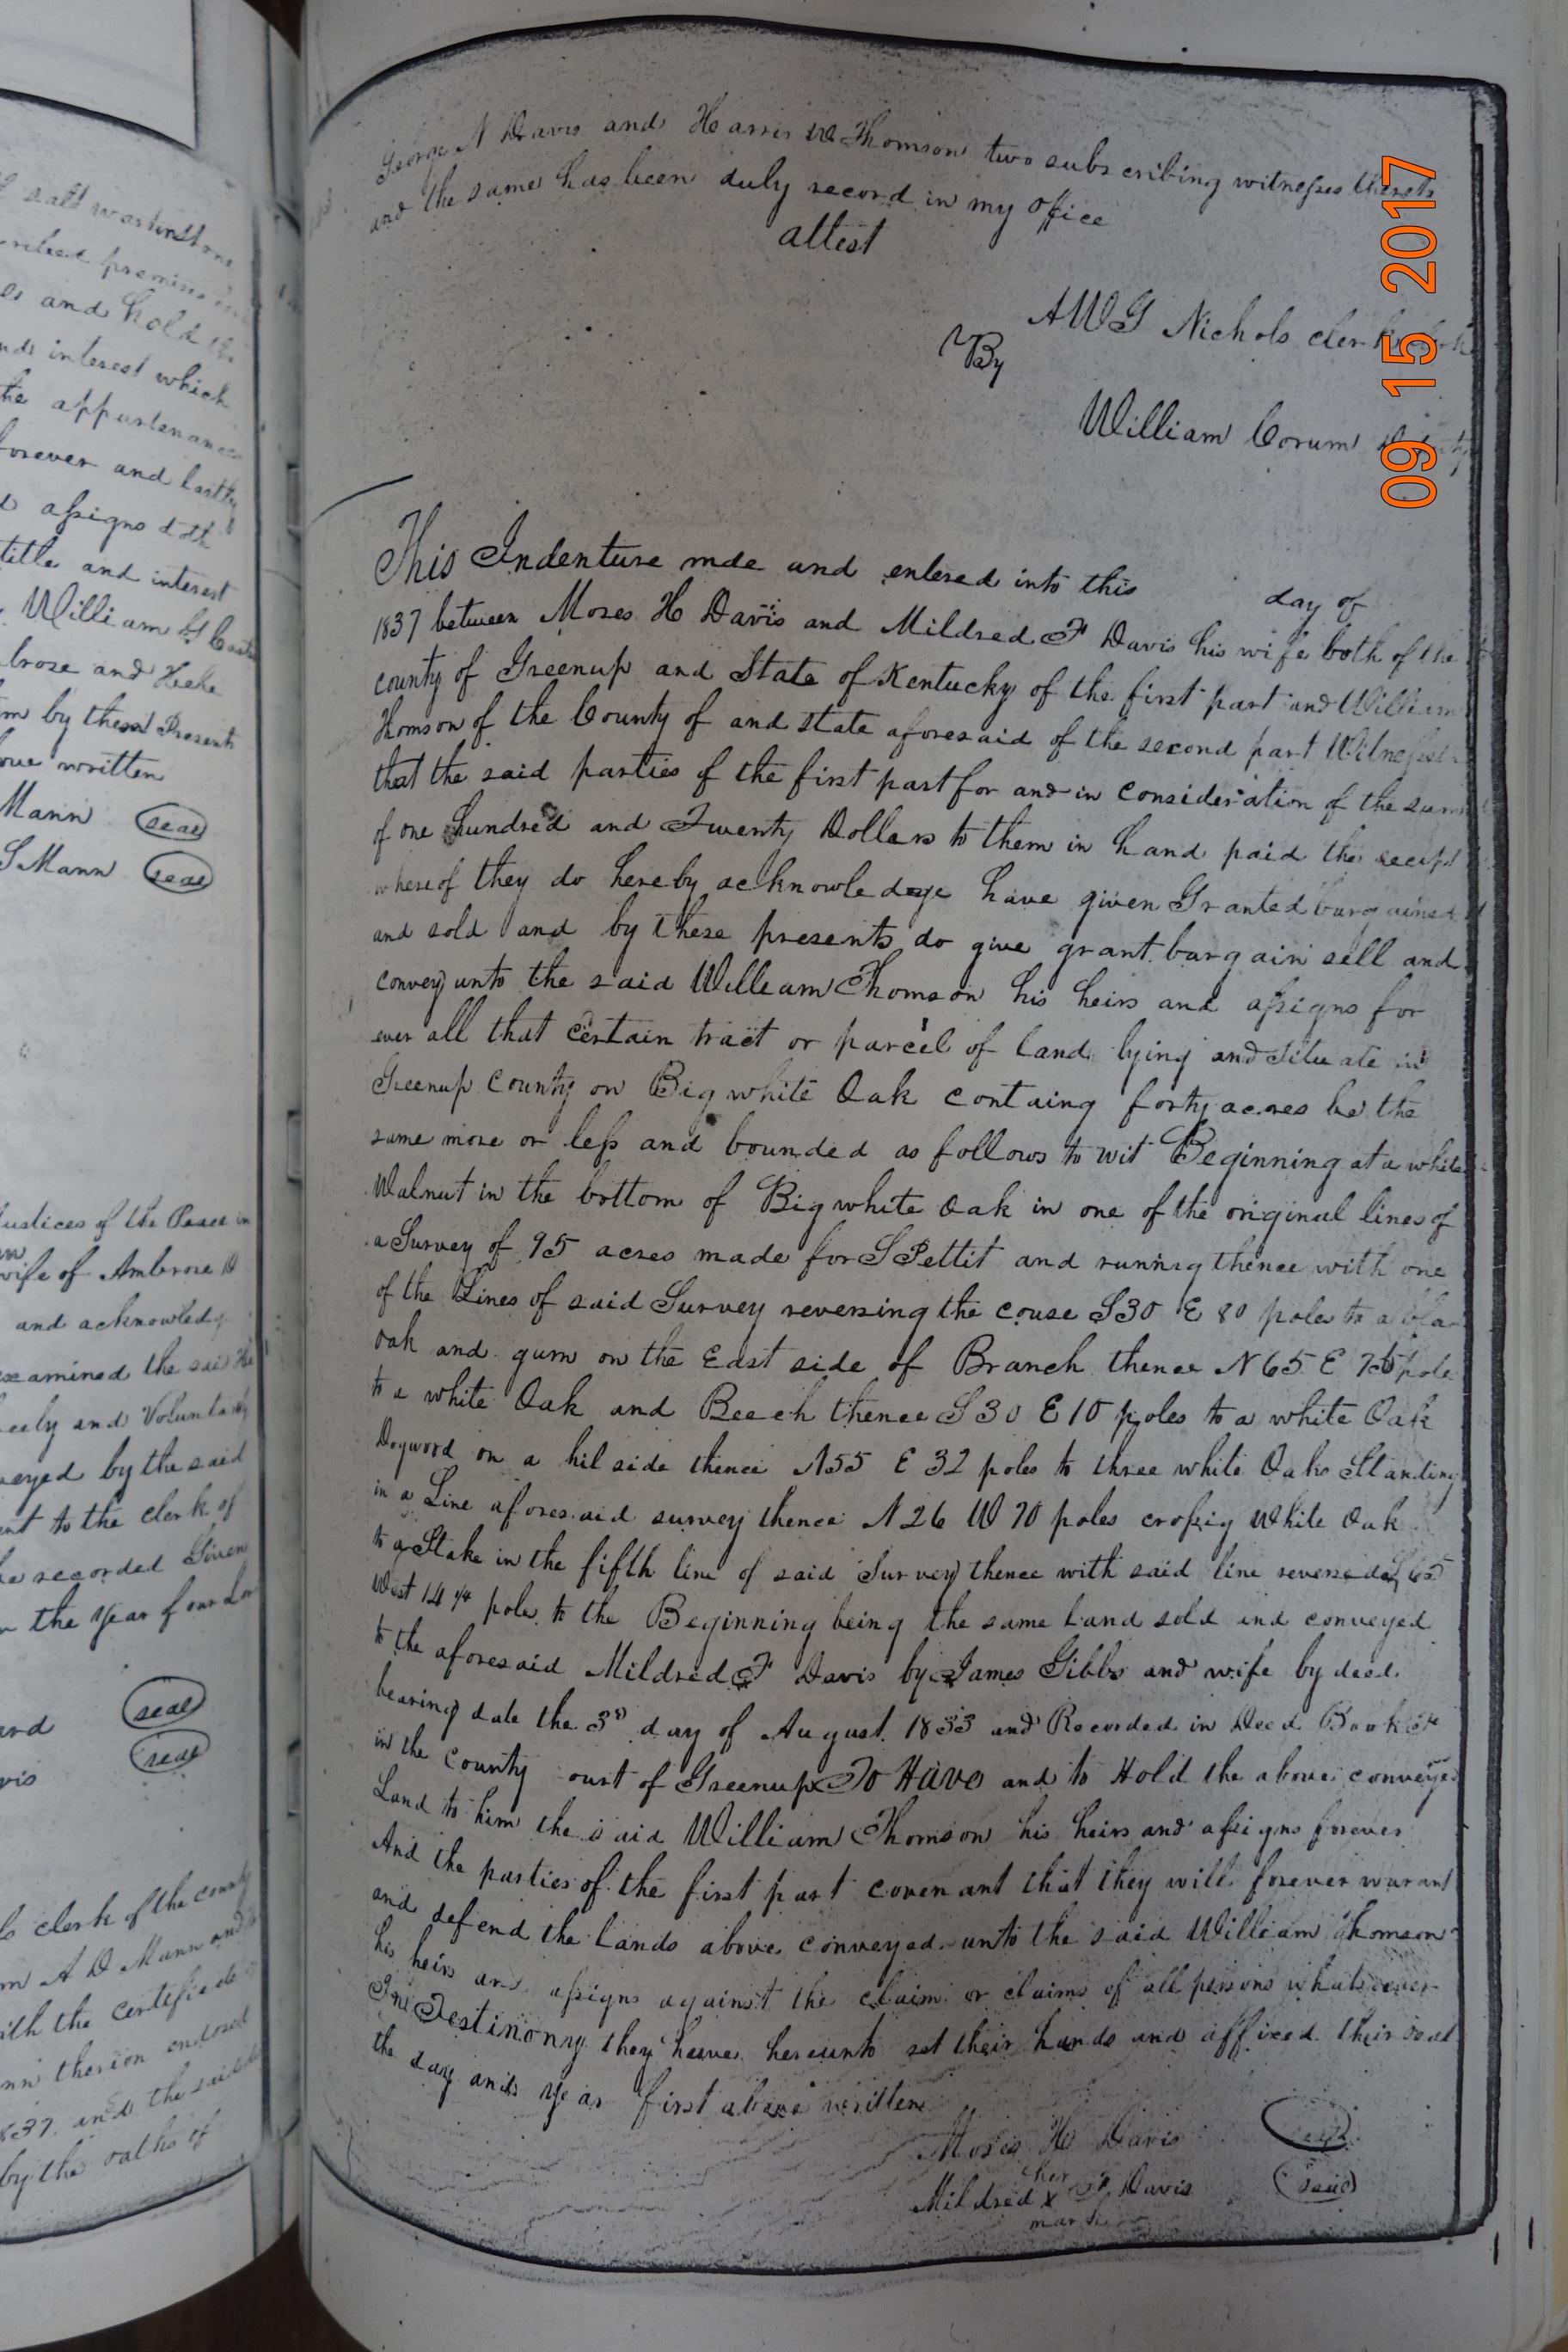 l salt wartinstone
cribed premises
es and hold the
nds interest which
the appurtenances
forever and lastly
d assigns doth
title and interest
William
brose and Heske
m by these Presents
ove written
Mann seal
S Mann seal
Justices of the Peace in
wife of Ambrose D
and acknowledg
examined the said
reely and Voluntarily
veyed by the said
ent to the clerk of
be recorded Given
n the year of our Lor
ard seal
vis seal
clerk of the county
m A D Mann and
ith the certificate
nn thereon endorsed
1837 and the said
by the oaths of
George N Davis and Harris W Thomson two subscribing witnesses thereto
and the same has been duly record in my office
attest
A W G Nichols clerk
By
William Corum Deputy
This Indenture mde and entered into this day of
1837 between Moses H Davis and Mildred F Davis his wife both of the
county of Greenup and State of Kentucky of the first part and William
Thomson of the County of and state aforesaid of the second part Witnesseth
that the said parties of the first part for and in consideration of the sum
of one hundred and Twenty Dollars to them in hand paid the receipt
whereof they do hereby acknowledge have given Granted bargained
and sold and by these presents do give grant bargain sell and
convey unto the said William Thomson his heirs and assigns for
ever all that certain tract or parcel of land lying and Situate in
Greenup County on Big white Oak containg forty acres be the
same more or less and bounded as follows to wit Beginning at a white
Walnut in the bottom of Big white Oak in one of the original lines of
a Survey of 95 acres made for S Pettit and runnig thence with one
of the Lines of said Survey reversing the couse S30 E 80 poles to a blac
oak and gum on the East side of Branch thence N 65 E pole
to a white Oak and Beech thence S 30 E 10 poles to a white Oak
Dogwood on a hil side thence N55 E 32 poles to three white Oaks Standing
in a Line aforesaid survey thence N 26 W 70 poles crossig White Oak
to a Stake in the fifth line of said Survey thence with said line reversed S 65
West 14 1/4 poles to the Beginning being the same Land sold and conveyed
to the aforesaid Mildred F Davis by James Gibbs and wife by deed
bearing date the 3d day of August 1833 and Recorded in Deed Book
in the county ourt of Greenup To Have and to Hold the above conveyed
Land to him the said William Thomson his heirs and assigns forever
And the parties of the first part covenant that they will forever warant
and defend the Lands above conveyed unto the said William Thomson
his heirs and assigns against the claim or claims of all persons whatsoever
In Testimonny they have hereunto set their hands and affixed their seal
the day and year first above written
Moses H Davis seal
her
Mildred x F Davis seal
mark
09 15 2017